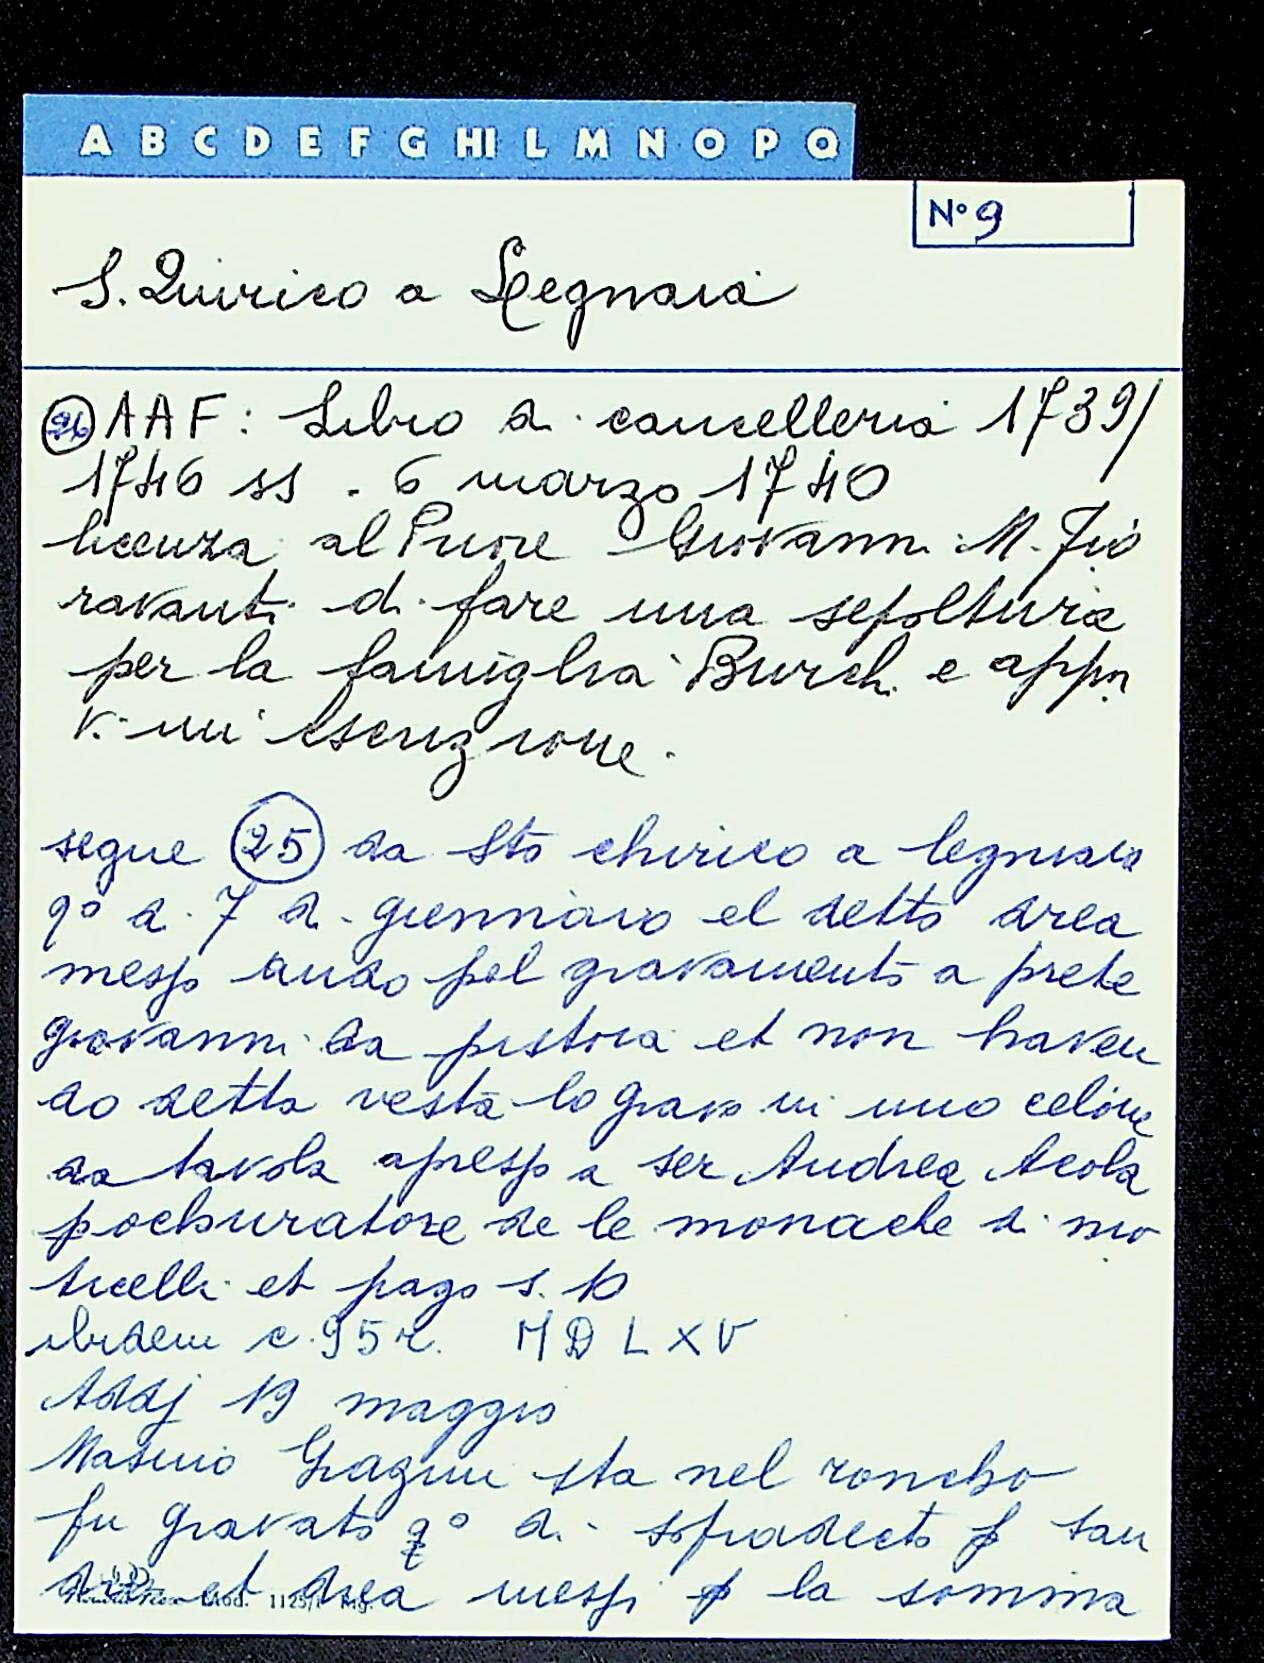 A B C D E F G HI L M N O P Q
N° 9
S. Quirico a Legnaia
26 AAF: Libro di cancelleria 1739/
1746 ss. 6 marzo 1740
licenza al Priore Giovanni M. Fio
ravanti di fare una sepoltura
per la famiglia Burchi e appo
v. mi esenzione.
segue 25 da Sto chirico a legniaia
qo di 7 di giennaio el detto drea
messo ando pel gravamento a prete
giovanni da pistoia et non haven
do detta vesta lo gravo in uno celone
da tavola apresso a ser Andrea
pochuratore de le monache di mo
ticelli et pago s. 10
ibidem c. 95 r. MDLXV
Addj 19 maggio
Masino sta nel roncho
fu gravato qo di sopradecto p san
et drea messi p la somma
Mod. 1125/